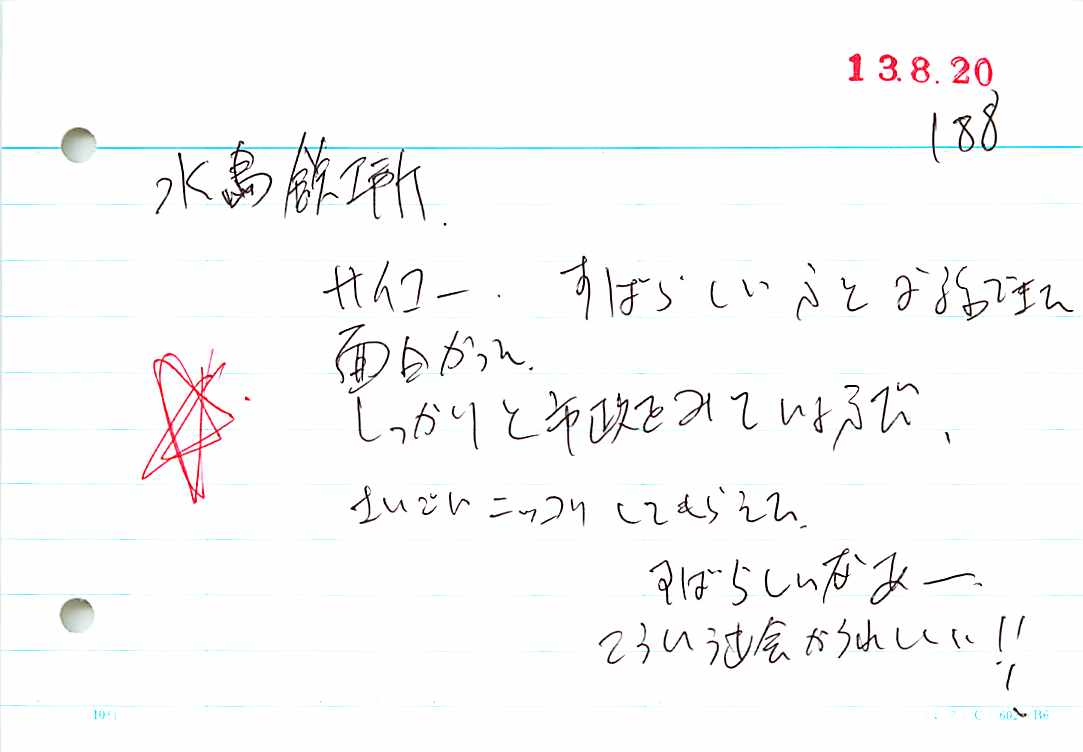 13.8.20
188
水島飲工所.
サイコー. すばらしい ふと お話できた
面白かった.
しっかりと市政をみている
さいごに ニッコリ してもらえた.
すばらしいなあー.
こういう出会がうれしい!!